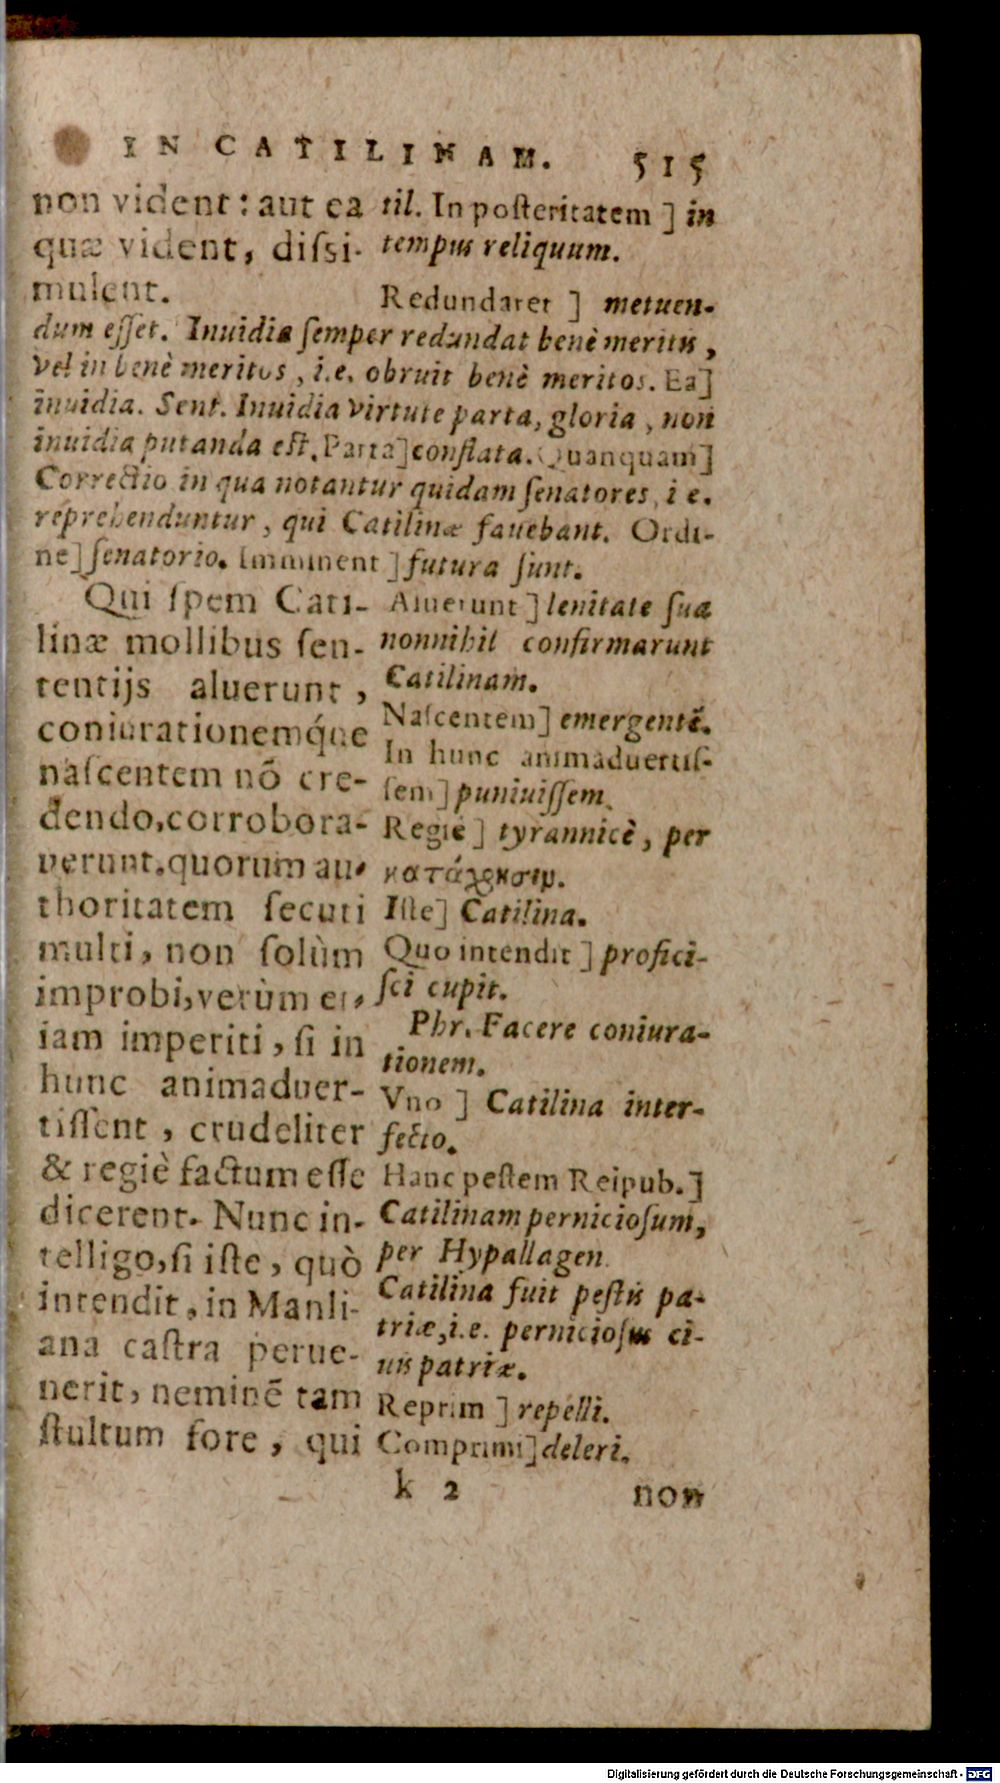 IN CATILINAM. 515
non vident: aut ea
quæ vident, dissi-
mulent.
til. In posteritatem ] in
tempus reliquum.
Redundaret ] metuen-
dum esset. Inuidia semper redundat benè meritis,
vel in benè meritos, i.e. obruit benè meritos. Ea]
inuidia. Sent. Inuidia virtute parta, gloria, non
inuidia putanda est. Parta] conflata. Quanquam]
Correctio in qua notantur quidam senatores, i e.
reprehenduntur, qui Catilinæ fauebant. Ordi-
ne] senatorio. Imminent ] futura sunt.
Qui spem Cati-
linæ mollibus sen-
tentijs aluerunt,
coniurationemq́ue
nascentem nõ cre-
dendo, corrobora-
verunt. quorum au-
thoritatem secuti
multi, non solùm
improbi, verùm et-
iam imperiti, si in
hunc animaduer-
tissent, crudeliter
& regiè factum esse
dicerent. Nunc in-
telligo, si iste, quò
intendit, in Manli-
ana castra perue-
nerit, neminẽ tam
stultum fore, qui
Aluerunt ] lenitate sua
nonnihil confirmarunt
Catilinam.
Nascentem] emergentẽ.
In hunc animaduertis-
sem] puniuissem.
Regiè ] tyrannicè, per
κατάχρησιν.
Iste] Catilina.
Quo intendit ] profici-
sci cupit.
Phr. Facere coniura-
tionem.
Vno ] Catilina inter-
fecto.
Hanc pestem Reipub.]
Catilinam perniciosum,
per Hypallagen.
Catilina fuit pestis pa-
triæ, i.e. perniciosus ci-
uis patriæ.
Reprim ] repelli.
Comprimi] deleri.
k 2 non
Digitalisierung gefördert durch die Deutsche Forschungsgemeinschaft - DFG